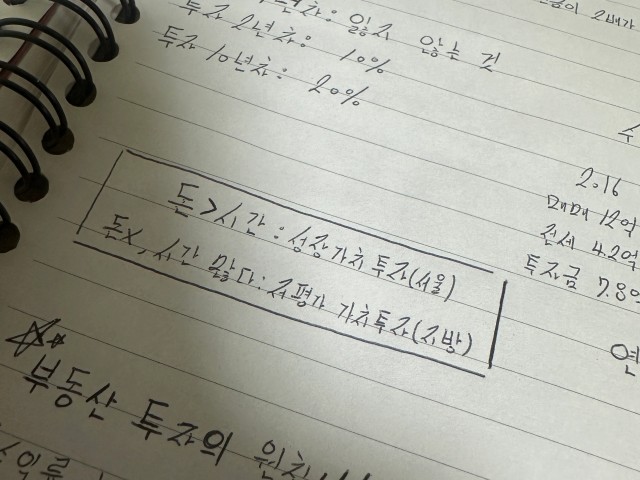 잃지 않는 것
투자 2년차: 10%
투자 10년차: 20%
2.16
매매 12억
전세 4.2억
투자금 7.8억
돈>시간: 성장가치 투자(서울)
돈x, 시간 많다: 저평가 가치투자(지방)
연
부동산 투자의 원칙